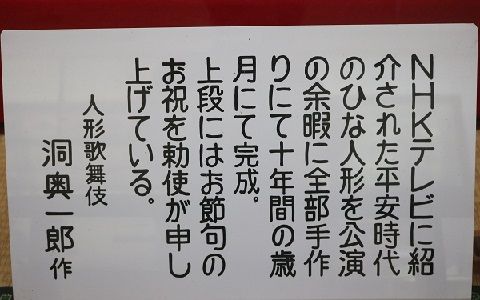 ＮＨＫテレビに紹
介された平安時代
のひな人形を公演
の余暇に全部手作
りにて十年間の歳
月にて完成。
上段にはお節句の
お祝を勅使が申し
上げている。
人形歌舞伎
洞奥一郎作